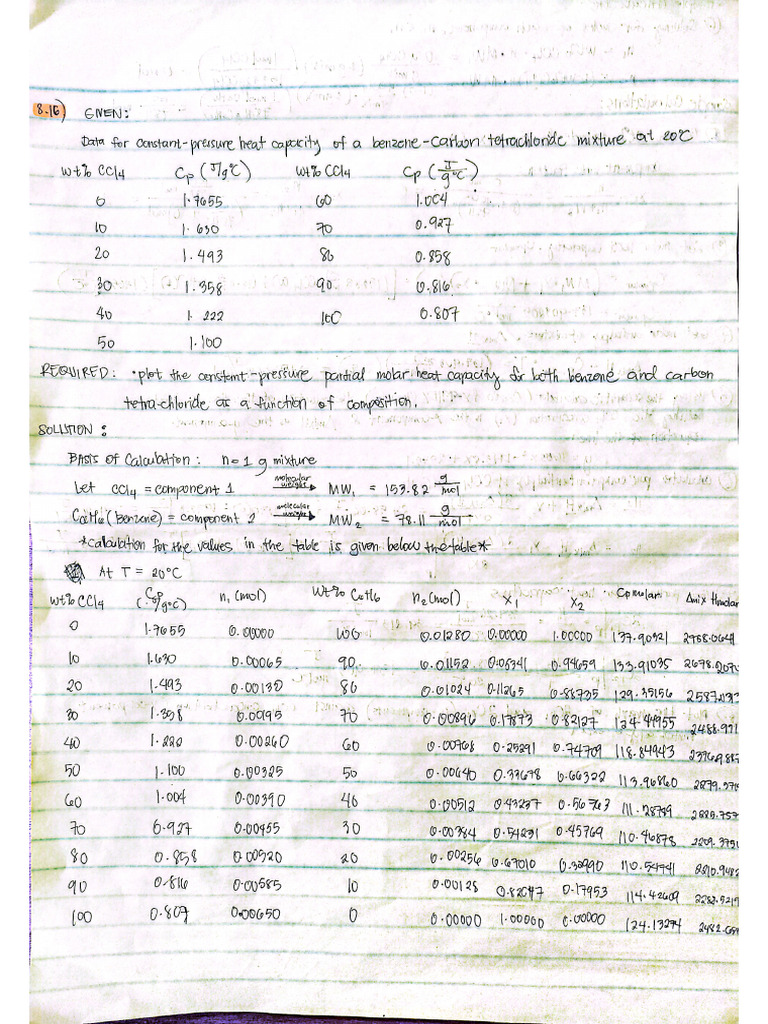 8.16) GIVEN:
Data for constant-pressure heat capacity of a benzene-carbon tetrachloride mixture at 20°C
wt% CCl4 Cp (J/g°C) wt% CCl4 Cp (J/g°C)
0 1.7655 60 1.004
10 1.630 70 0.927
20 1.493 80 0.858
30 1.358 90 0.816
40 1.222 100 0.807
50 1.100
REQUIRED: • plot the constant-pressure partial molar heat capacity for both benzene and carbon
tetra-chloride as a function of composition.
SOLUTION:
BASIS of Calculation: n=1 g mixture
Let CCl4 = component 1 molecular weight → MW1 = 153.82 g/mol
C6H6 (Benzene) = component 2 molecular weight → MW2 = 78.11 g/mol
*calculation for the values in the table is given below the table*
At T = 20°C
wt% CCl4 Cp (J/g°C) n1 (mol) Wt% C6H6 n2 (mol) X1 X2 Cp molar Δmix
0 1.7655 0.00000 100 0.01280 0.00000 1.00000 137.90321
10 1.630 0.00065 90 0.01152 0.05341 0.94659 133.91035
20 1.493 0.00130 80 0.01024 0.11265 0.88735 129.35156
30 1.358 0.00195 70 0.00896 0.17873 0.82127 124.44955
40 1.220 0.00260 60 0.00768 0.25291 0.74709 118.84943
50 1.100 0.00325 50 0.00640 0.33678 0.66322 113.96860
60 1.004 0.00390 40 0.00512 0.43237 0.56763 111.28799
70 0.927 0.00455 30 0.00384 0.54231 0.45769 110.46878
80 0.858 0.00520 20 0.00256 0.67010 0.32990 110.54941
90 0.816 0.00585 10 0.00128 0.82047 0.17953 114.42609
100 0.807 0.00650 0 0.00000 1.00000 0.00000 124.13274